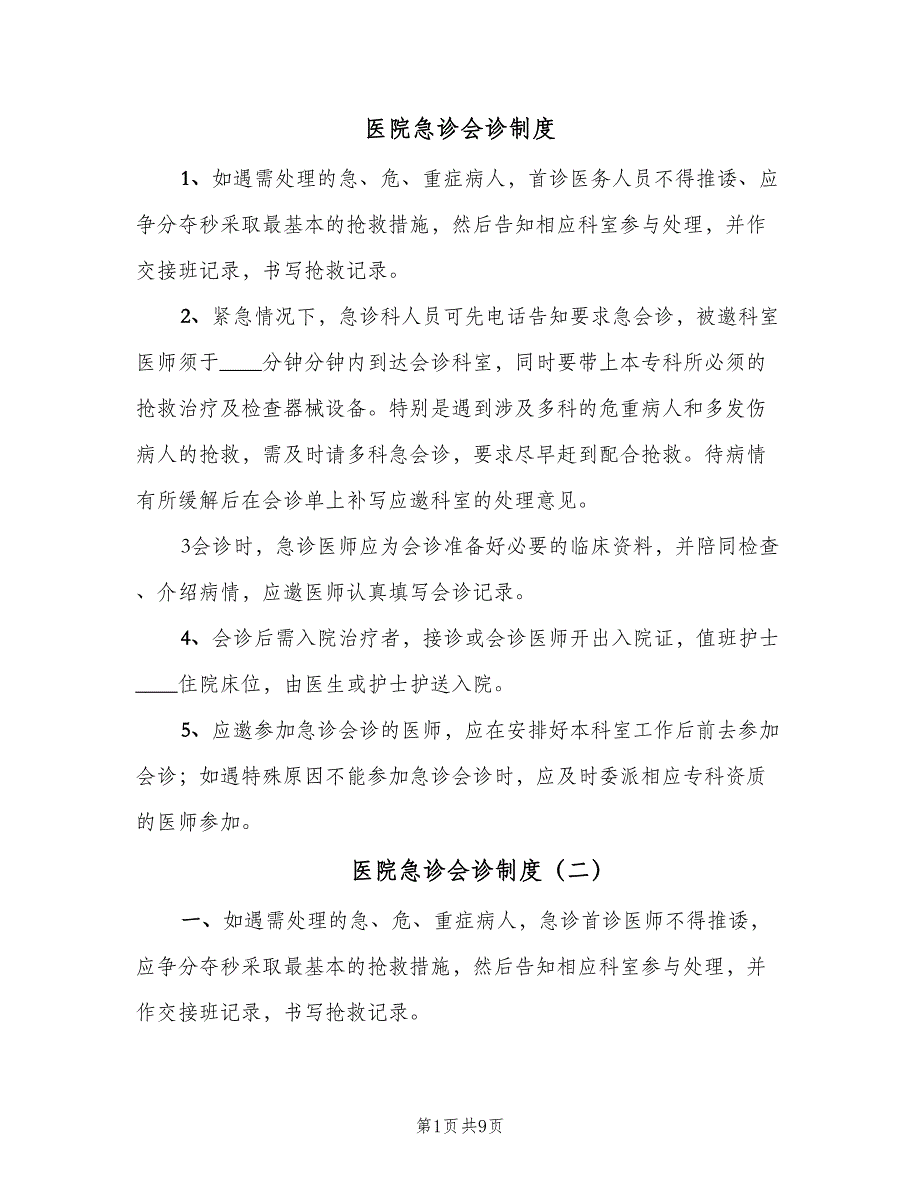 医院急诊会诊制度
1、如遇需处理的急、危、重症病人，首诊医务人员不得推诿、应
争分夺秒采取最基本的抢救措施，然后告知相应科室参与处理，并作
交接班记录，书写抢救记录。
2、紧急情况下，急诊科人员可先电话告知要求急会诊，被邀科室
医师须于____分钟分钟内到达会诊科室，同时要带上本专科所必须的
抢救治疗及检查器械设备。特别是遇到涉及多科的危重病人和多发伤
病人的抢救，需及时请多科急会诊，要求尽早赶到配合抢救。待病情
有所缓解后在会诊单上补写应邀科室的处理意见。
3会诊时，急诊医师应为会诊准备好必要的临床资料，并陪同检查
、介绍病情，应邀医师认真填写会诊记录。
4、会诊后需入院治疗者，接诊或会诊医师开出入院证，值班护士
____住院床位，由医生或护士护送入院。
5、应邀参加急诊会诊的医师，应在安排好本科室工作后前去参加
会诊；如遇特殊原因不能参加急诊会诊时，应及时委派相应专科资质
的医师参加。
医院急诊会诊制度（二）
一、如遇需处理的急、危、重症病人，急诊首诊医师不得推诿，
应争分夺秒采取最基本的抢救措施，然后告知相应科室参与处理，并
作交接班记录，书写抢救记录。
第1页 共9页